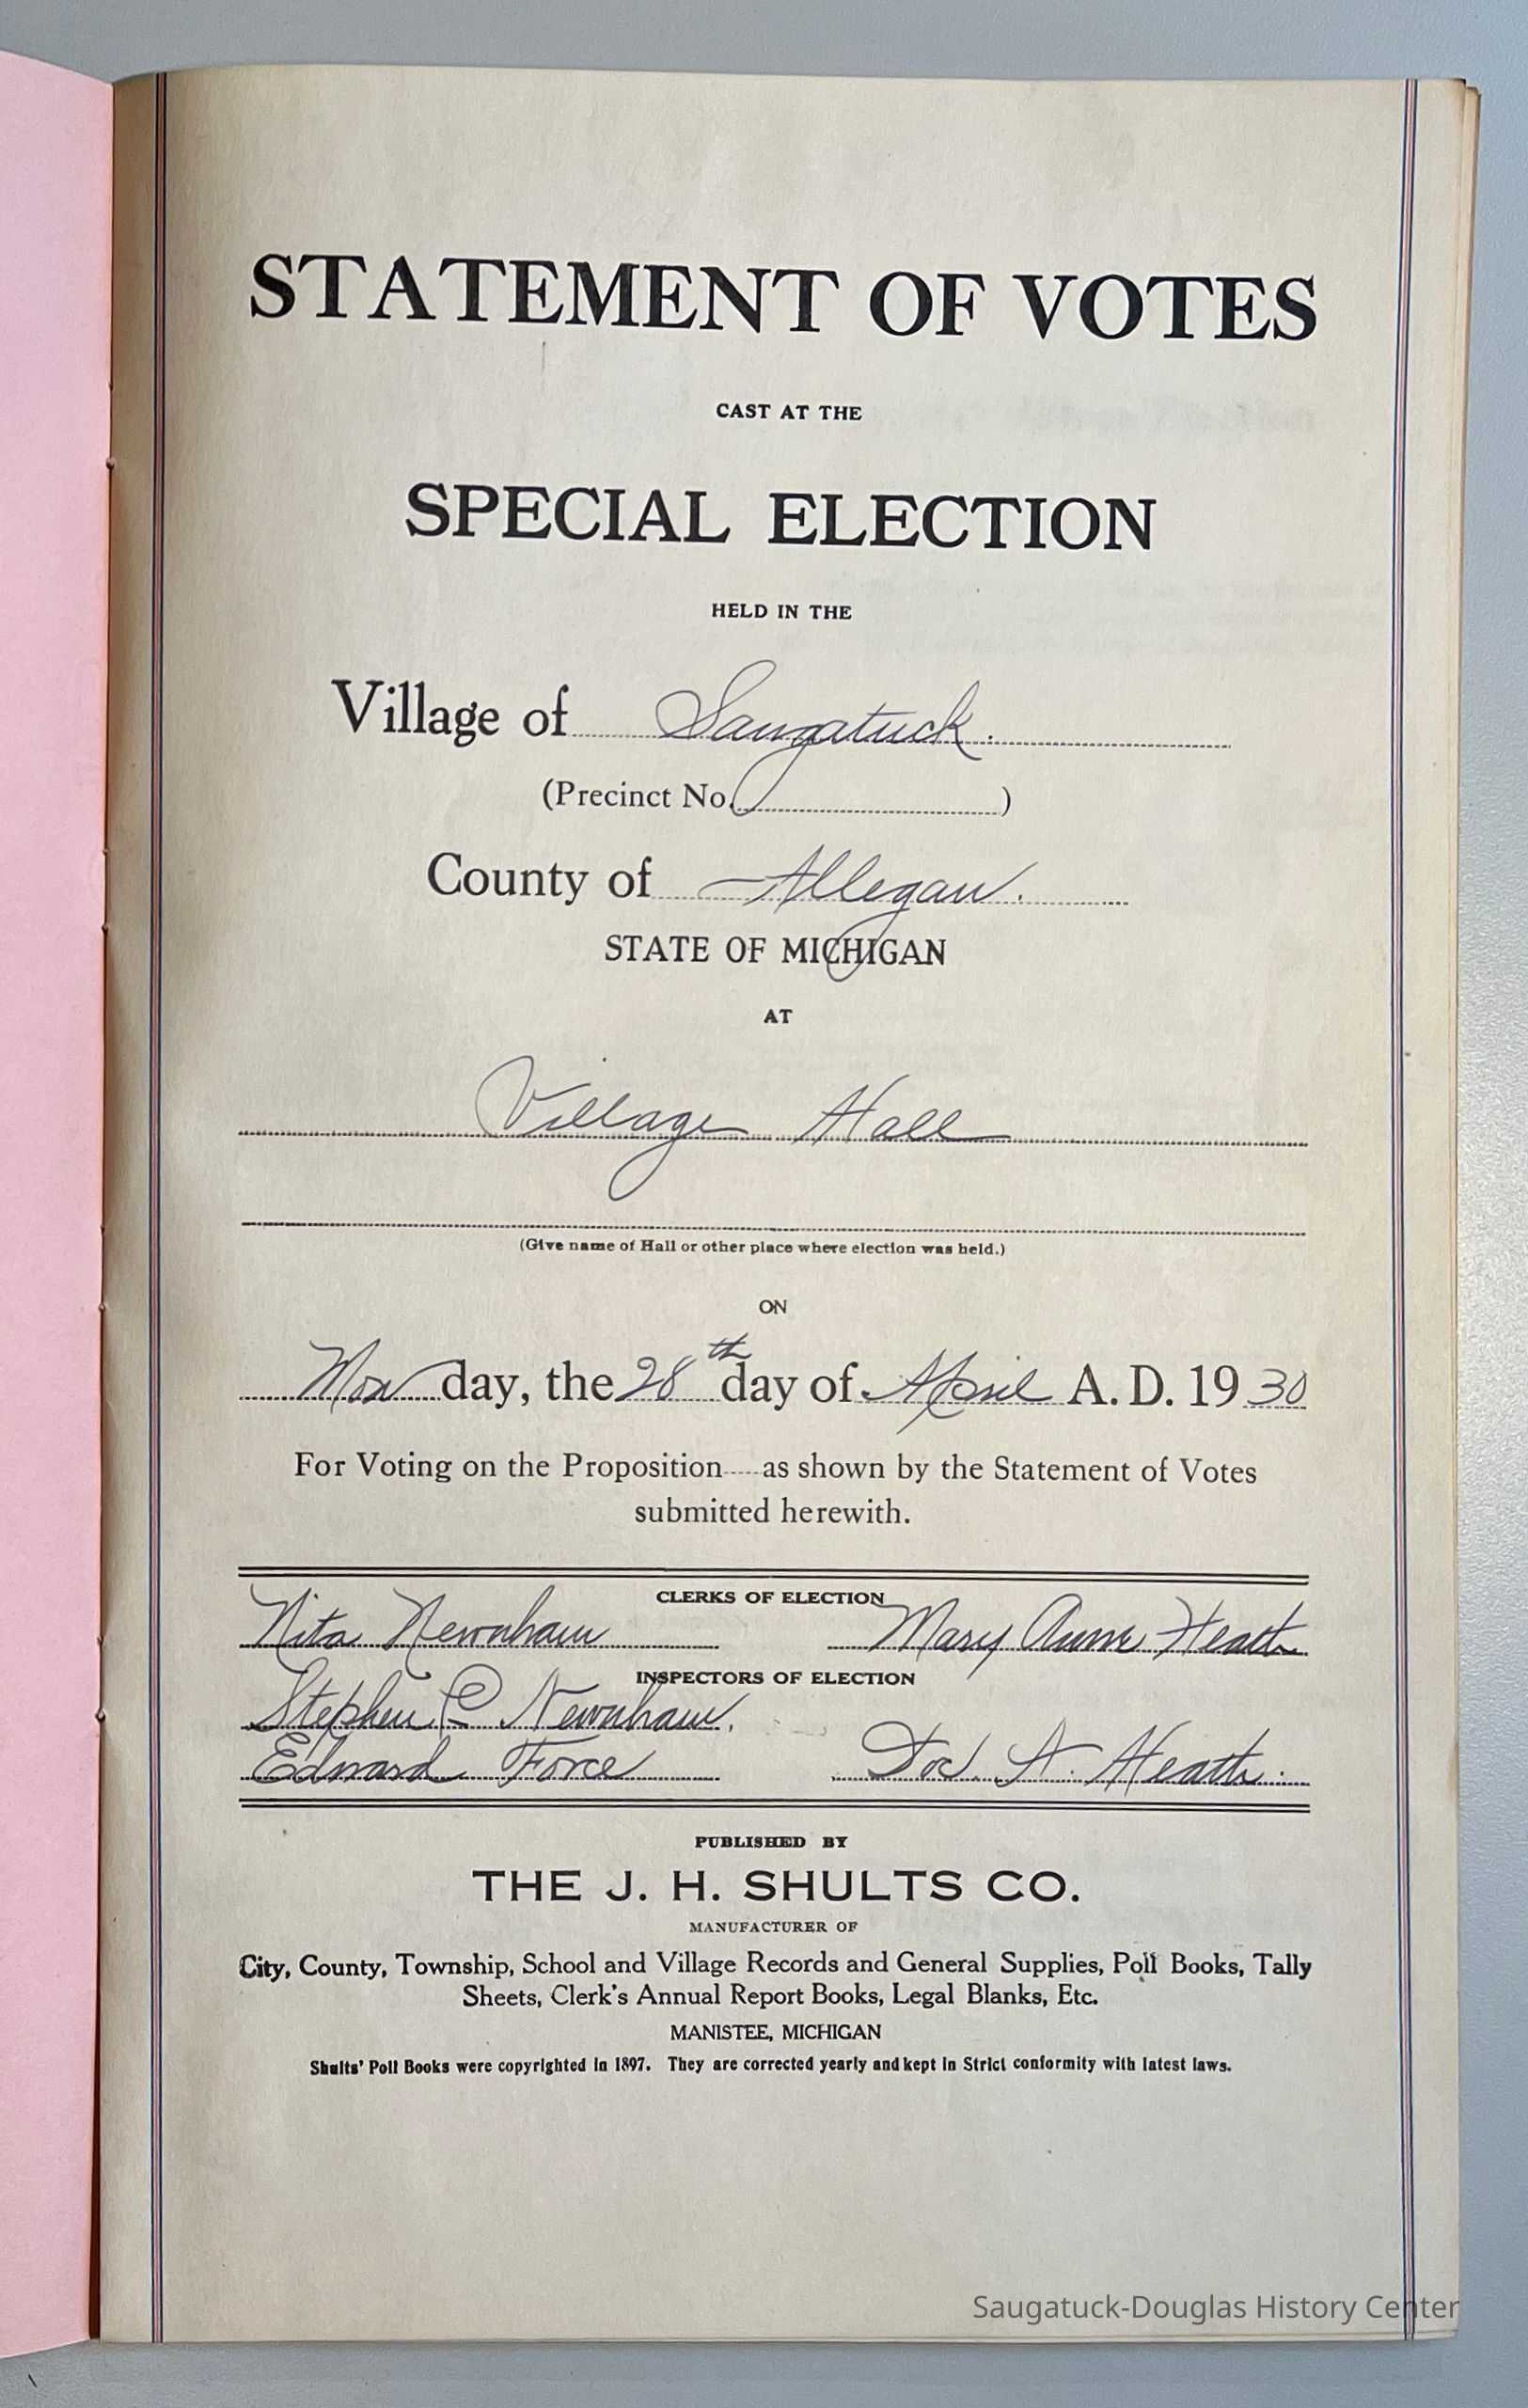 STATEMENT OF VOTES
CAST AT THE
SPECIAL ELECTION
HELD IN THE
Village of Saugatuck.
(Precinct No. )
County of Allegan.
STATE OF MICHIGAN
AT
Village Hall
(Give name of Hall or other place where election was held.)
ON
Mon day, the 28th day of April A. D. 19 30
For Voting on the Proposition as shown by the Statement of Votes
submitted herewith.
CLERKS OF ELECTION
Nita Newnham Mary Anne Heath
INSPECTORS OF ELECTION
Stephen L Newnham.
Edward Force Doc A. Heath.
PUBLISHED BY
THE J. H. SHULTS CO.
MANUFACTURER OF
City, County, Township, School and Village Records and General Supplies, Poll Books, Tally
Sheets, Clerk's Annual Report Books, Legal Blanks, Etc.
MANISTEE, MICHIGAN
Shults' Poll Books were copyrighted in 1897. They are corrected yearly and kept in Strict conformity with latest laws.
Saugatuck-Douglas History Center